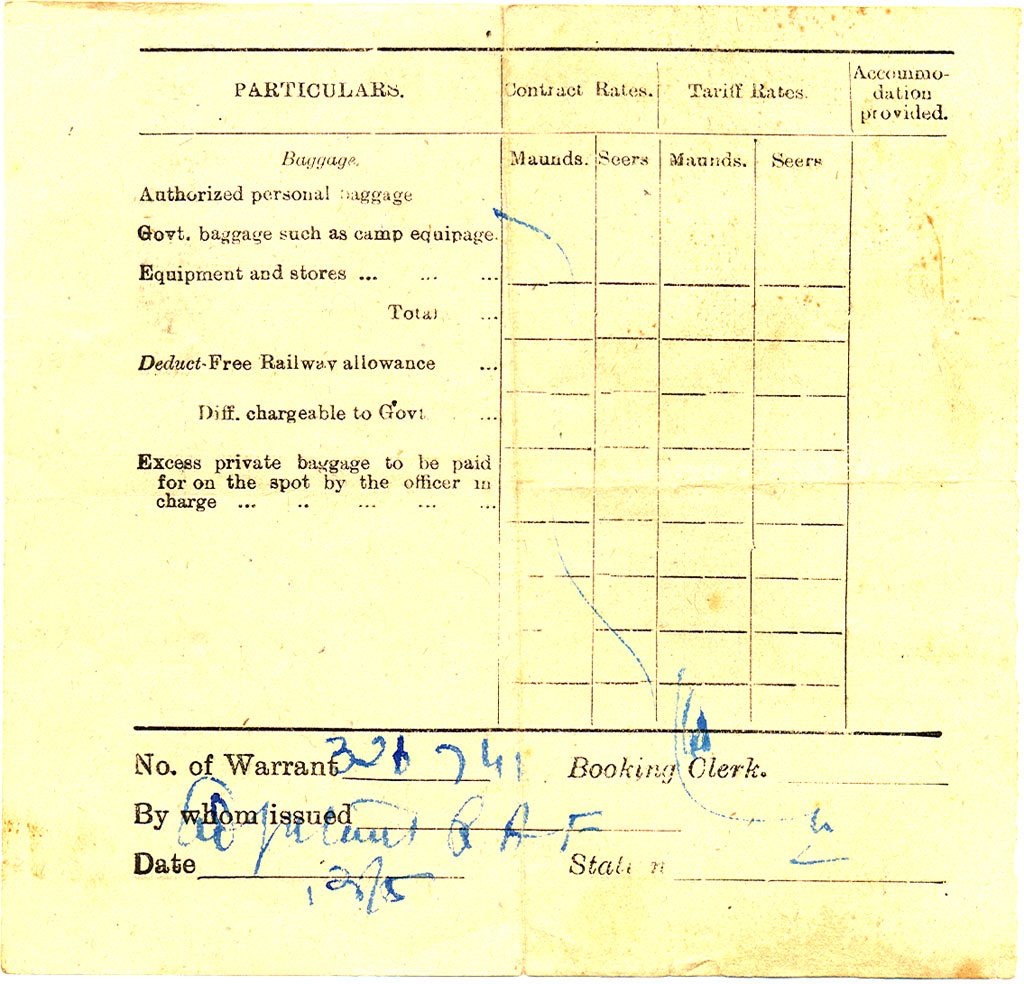 PARTICULARS. Contract Rates. Tariff Rates. Accommo-
dation
provided.
Baggage. Maunds. Seers Maunds. Seers
Authorized personal baggage ...
Govt. baggage such as camp equipage.
Equipment and stores ... ... ...
Total ...
Deduct-Free Railway allowance ...
Diff. chargeable to Govt ...
Excess private baggage to be paid
for on the spot by the officer in
charge ... .. ... ... ...
No. of Warrant Booking Clerk.
By whom issued Adjutant R A F
Date Station